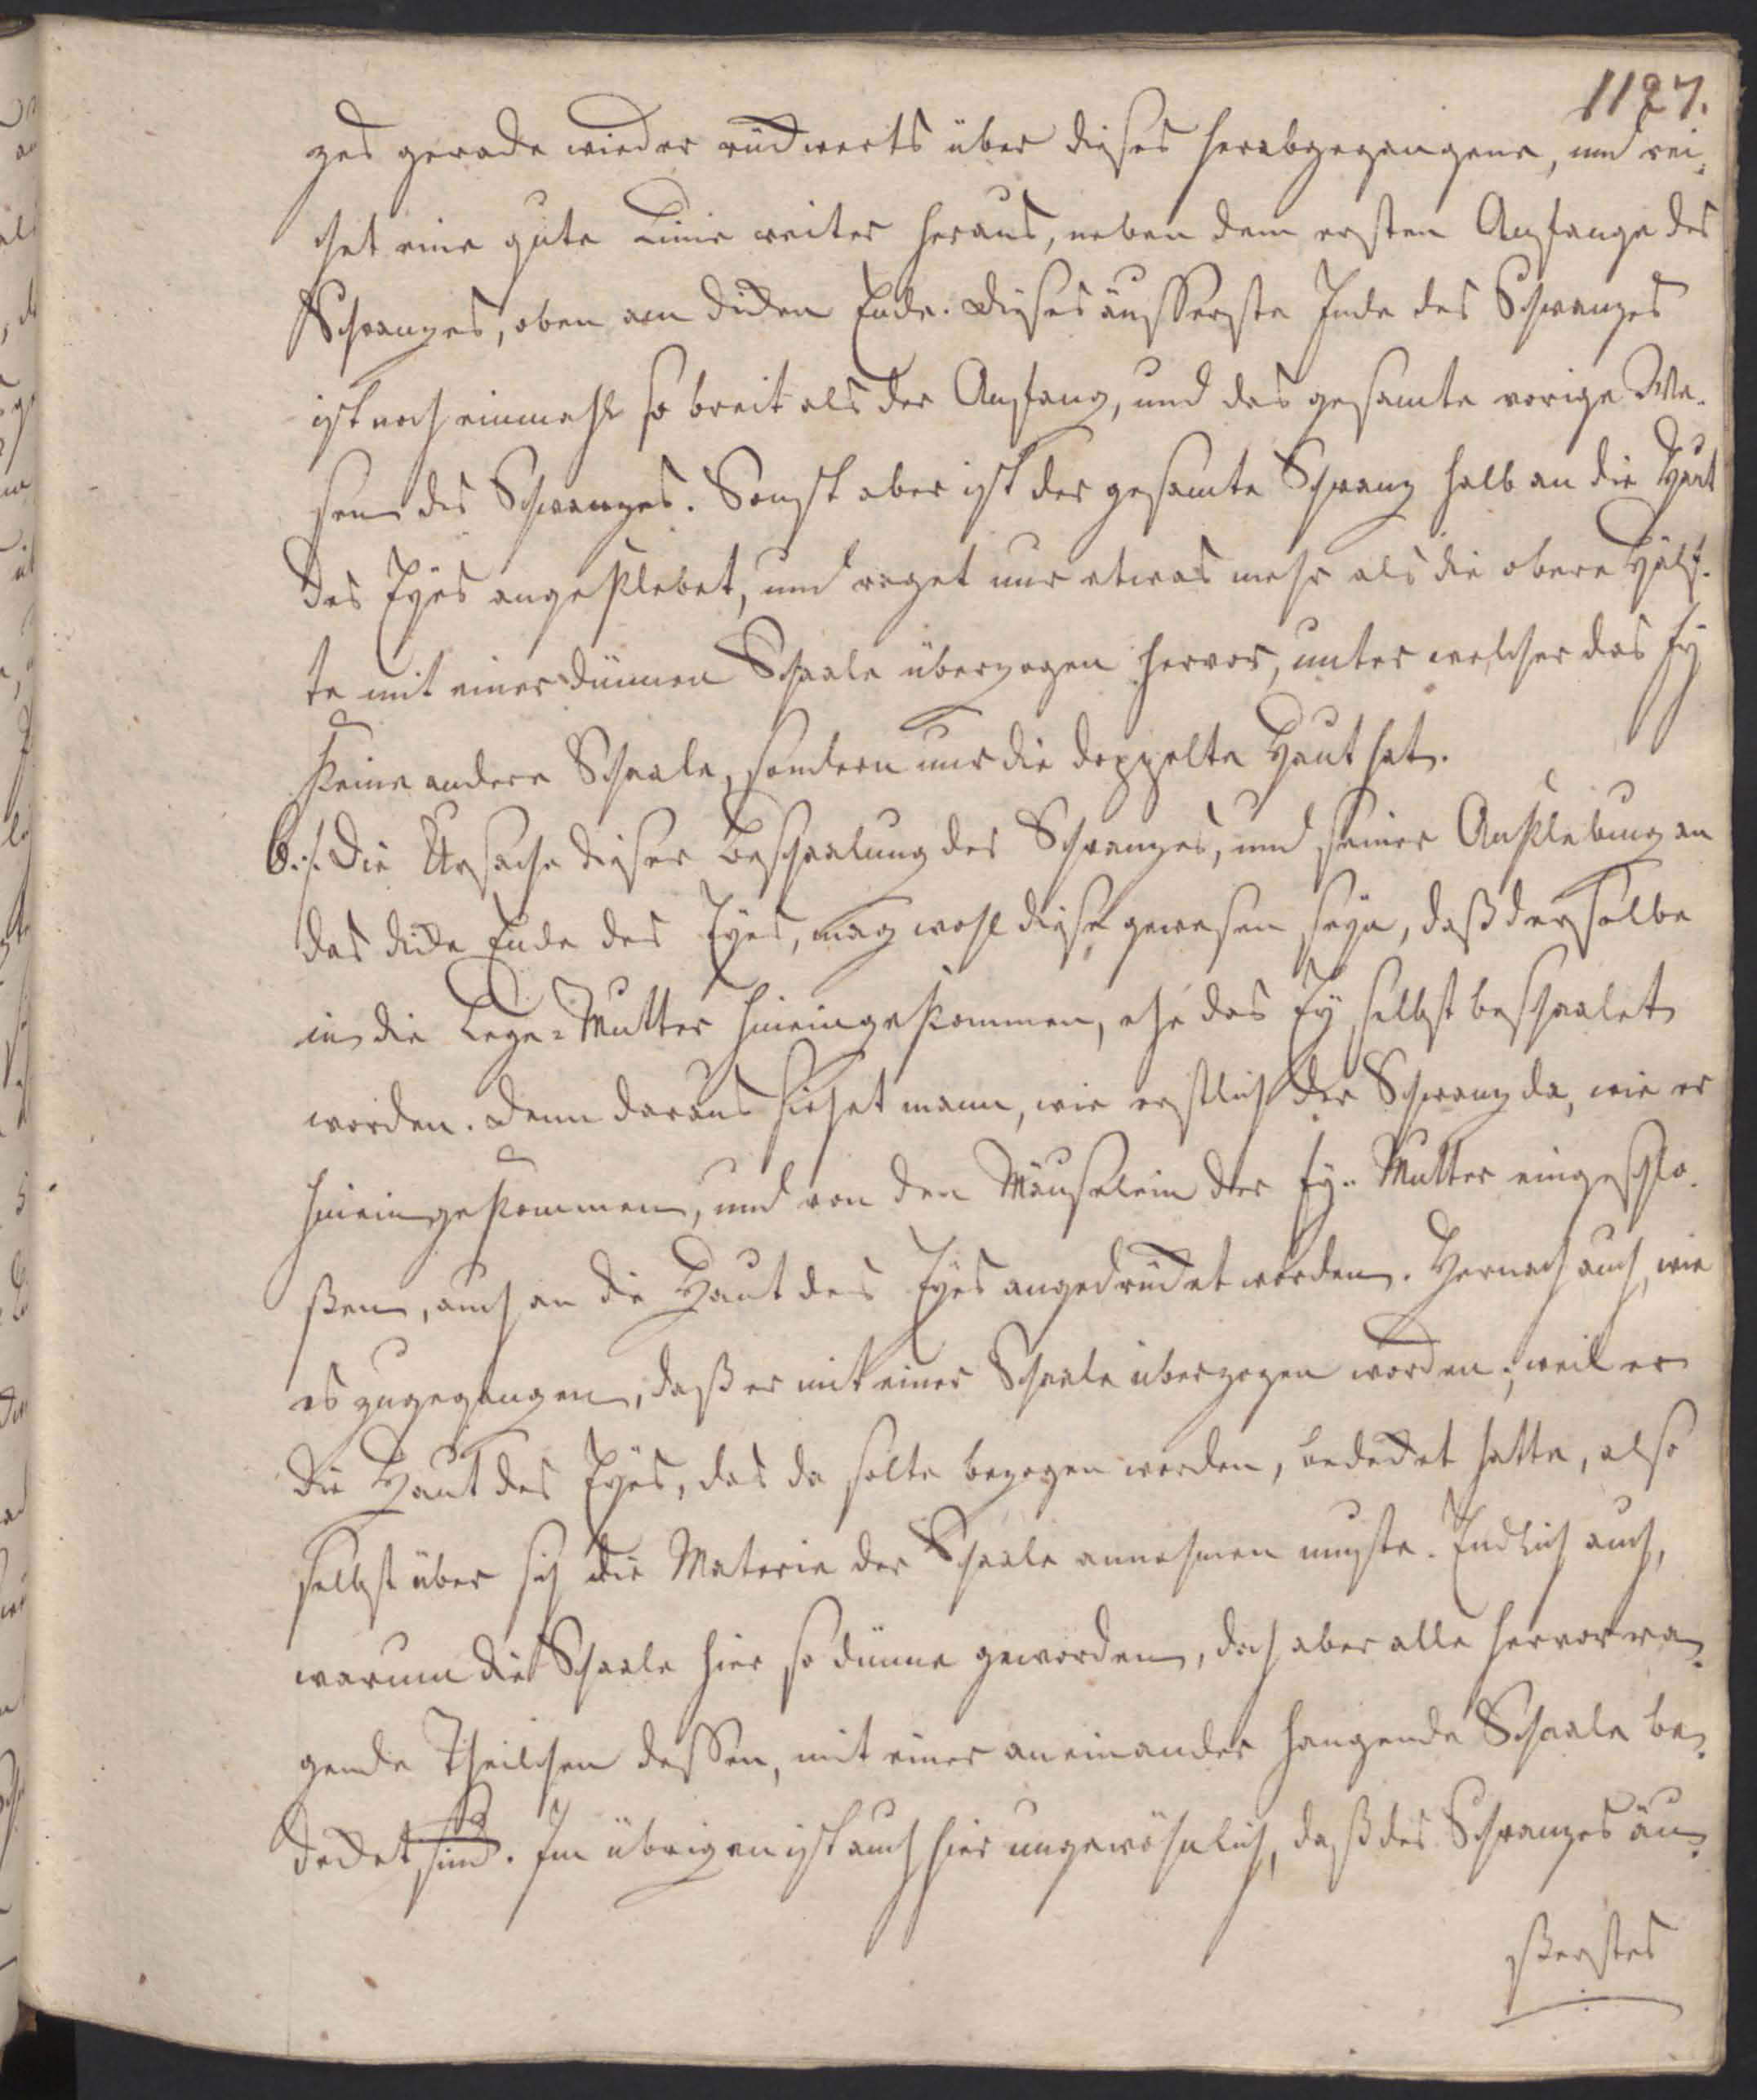 1127.
zes gerade wieder rückwerts über dieses herabgegangene, und rei¬
chet eine gute Linie weiter heraus, neben dem ersten Anfange des
Schwanzes, oben am dicken Ende. Dieses äusserste Ende des Schwanzes
ist noch einmahl so breit als der Anfang, und das gesamte vorige We¬
sen des Schwanzes. Sonst aber ist der gesamte Schwanz halb an die Haut
des Eyes angeklebet, und raget nur etwas mehr als die obere Hälf¬
te mit einer dünnen Schaale überzogen hervor, unter welcher das Ey
keine andere Schaale, sondern nur die doppelte Haut hat.
6.:/. Die Ursache dieser Beschaalung des Schwanzes, und seiner Anklebung an
das dicke Ende des Eyes, mag wohl diese gewesen seyn, daß derselbe
in die Lege-Mutter hineingekommen, ehe das Ey selbst beschaalet
worden. Denn daraus siehet mann, wie erstlich der Schwanz da, wie er
hineingekommen, und von den Mäuselein der Ey-Mutter eingeschlo¬
ßen, auch an die Haut des Eyes angedrücket worden. Hernach auch, wie
es zugegangen, daß er mit einer Schaale überzogen worden; weil er
die Haut des Eyes, das da solte bezogen werden, bedecket hatte, also
selbst über sich die Materie der Schaale annehmen muste. Endlich auch,
warum die Schaale hier so dünne geworden, doch aber alle hervorra¬
gende Theilchen dessen, mit einer aneinander hangende Schaale be¬
decket sind. Im übrigen ist auch hier ungewöhnlich, daß des Schwanzes äu¬
ßerstes